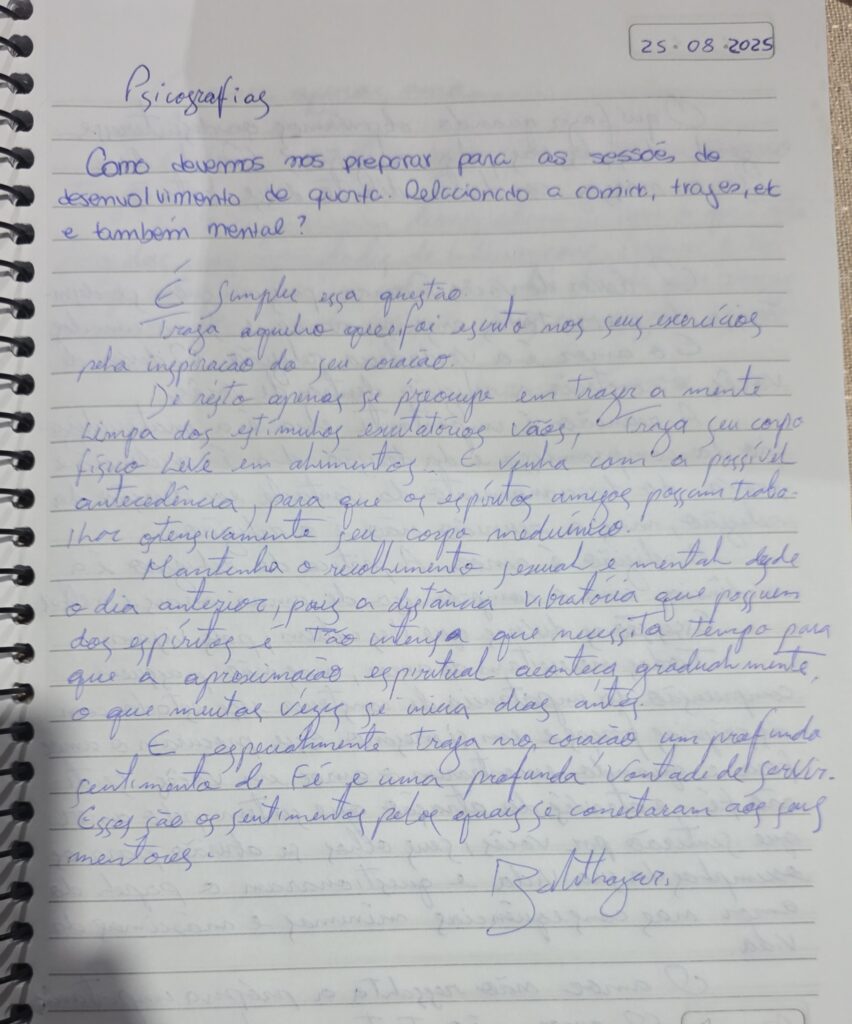 25.08.2025
Psicografias
Como devemos nos preparar para as sessões de
desenvolvimento de quarta. Relacionado a comida, trajes, etc
e também mental?
É simples essa questão.
Traga aquilo que foi escrito nos seus exercícios
pela inspiração do seu coração.
De resto apenas se preocupe em trazer a mente
limpa dos estímulos excitatórios vãos, Traga seu corpo
físico leve em alimentos. E venha com a possível
antecedência, para que os espíritos amigos possam traba-
lhar ostensivamente seu corpo mediúnico.
Mantenha o recolhimento sexual e mental desde
o dia anterior, pois a distância vibratória que possuem
dos espíritos é tão intensa que necessita tempo para
que a aproximação espiritual aconteça gradualmente,
o que muitas vezes se inicia dias antes.
E especialmente traga no coração um profundo
sentimento de Fé e uma profunda vontade de servir.
Esses são os sentimentos pelos quais se conectaram aos seus
mentores.
Balthazar.